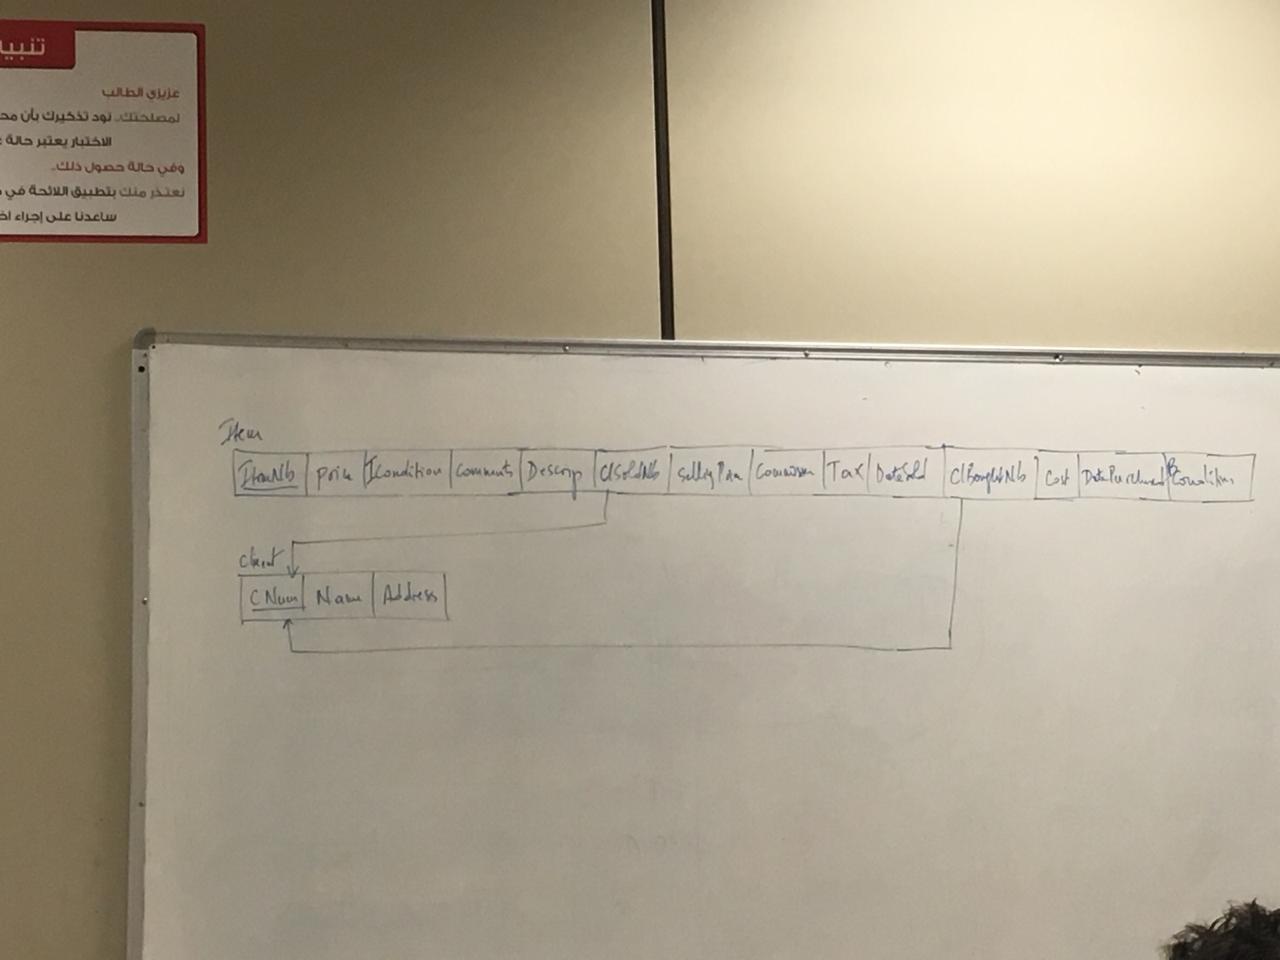 تنبيه
عزيزي الطالب
لمصلحتك.. نود تذكيرك بأن
الاختبار يعتبر حالة
وفي حالة حصول ذلك..
نعتذر منك بتطبيق اللائحة في
ساعدنا على إجراء
Item
ItemNb Price ICondition Comments Descrip ClSoldNb SellingPrice Commission Tax DateSold ClBoughtNb Cost DatePurchased Condition
Client
CNum Name Address